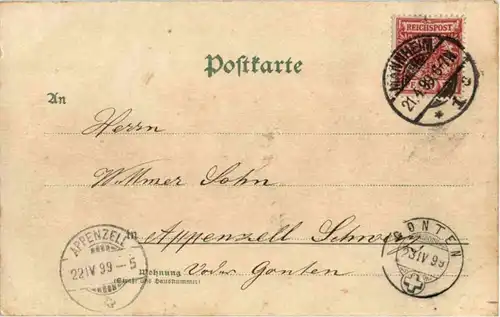 REICHSPOST
MANNHEIM
21.4.99.
1
Postkarte
An
Herrn
Wittmer Sohn
in Appenzell Schweiz
Wohnung
(Straße und Hausnummer)
Gonten
APPENZELL
22 IV 99-5
GONTEN
23 IV 99